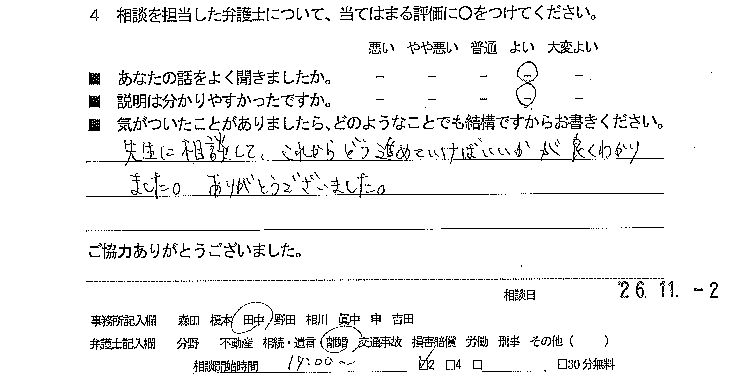 4 相談を担当した弁護士について、当てはまる評価に○をつけてください。
悪い やや悪い 普通 よい 大変よい
■ あなたの話をよく聞きましたか。 − − − − −
■ 説明は分かりやすかったですか。 − − − − −
■ 気がついたことがありましたら、どのようなことでも結構ですからお書きください。
先生に相談して、これからどう進めていけばいいかが良くわかり
ました。ありがとうございました。
ご協力ありがとうございました。
相談日 '26.11.-2
事務所記入欄 森田 榎本 田中 野田 相川 眞中 申 吉田
弁護士記入欄 分野 不動産 相続・遺言 離婚 交通事故 損害賠償 労働 刑事 その他( )
相談開始時間 14:00〜 ☑2 □4 □ □30分無料